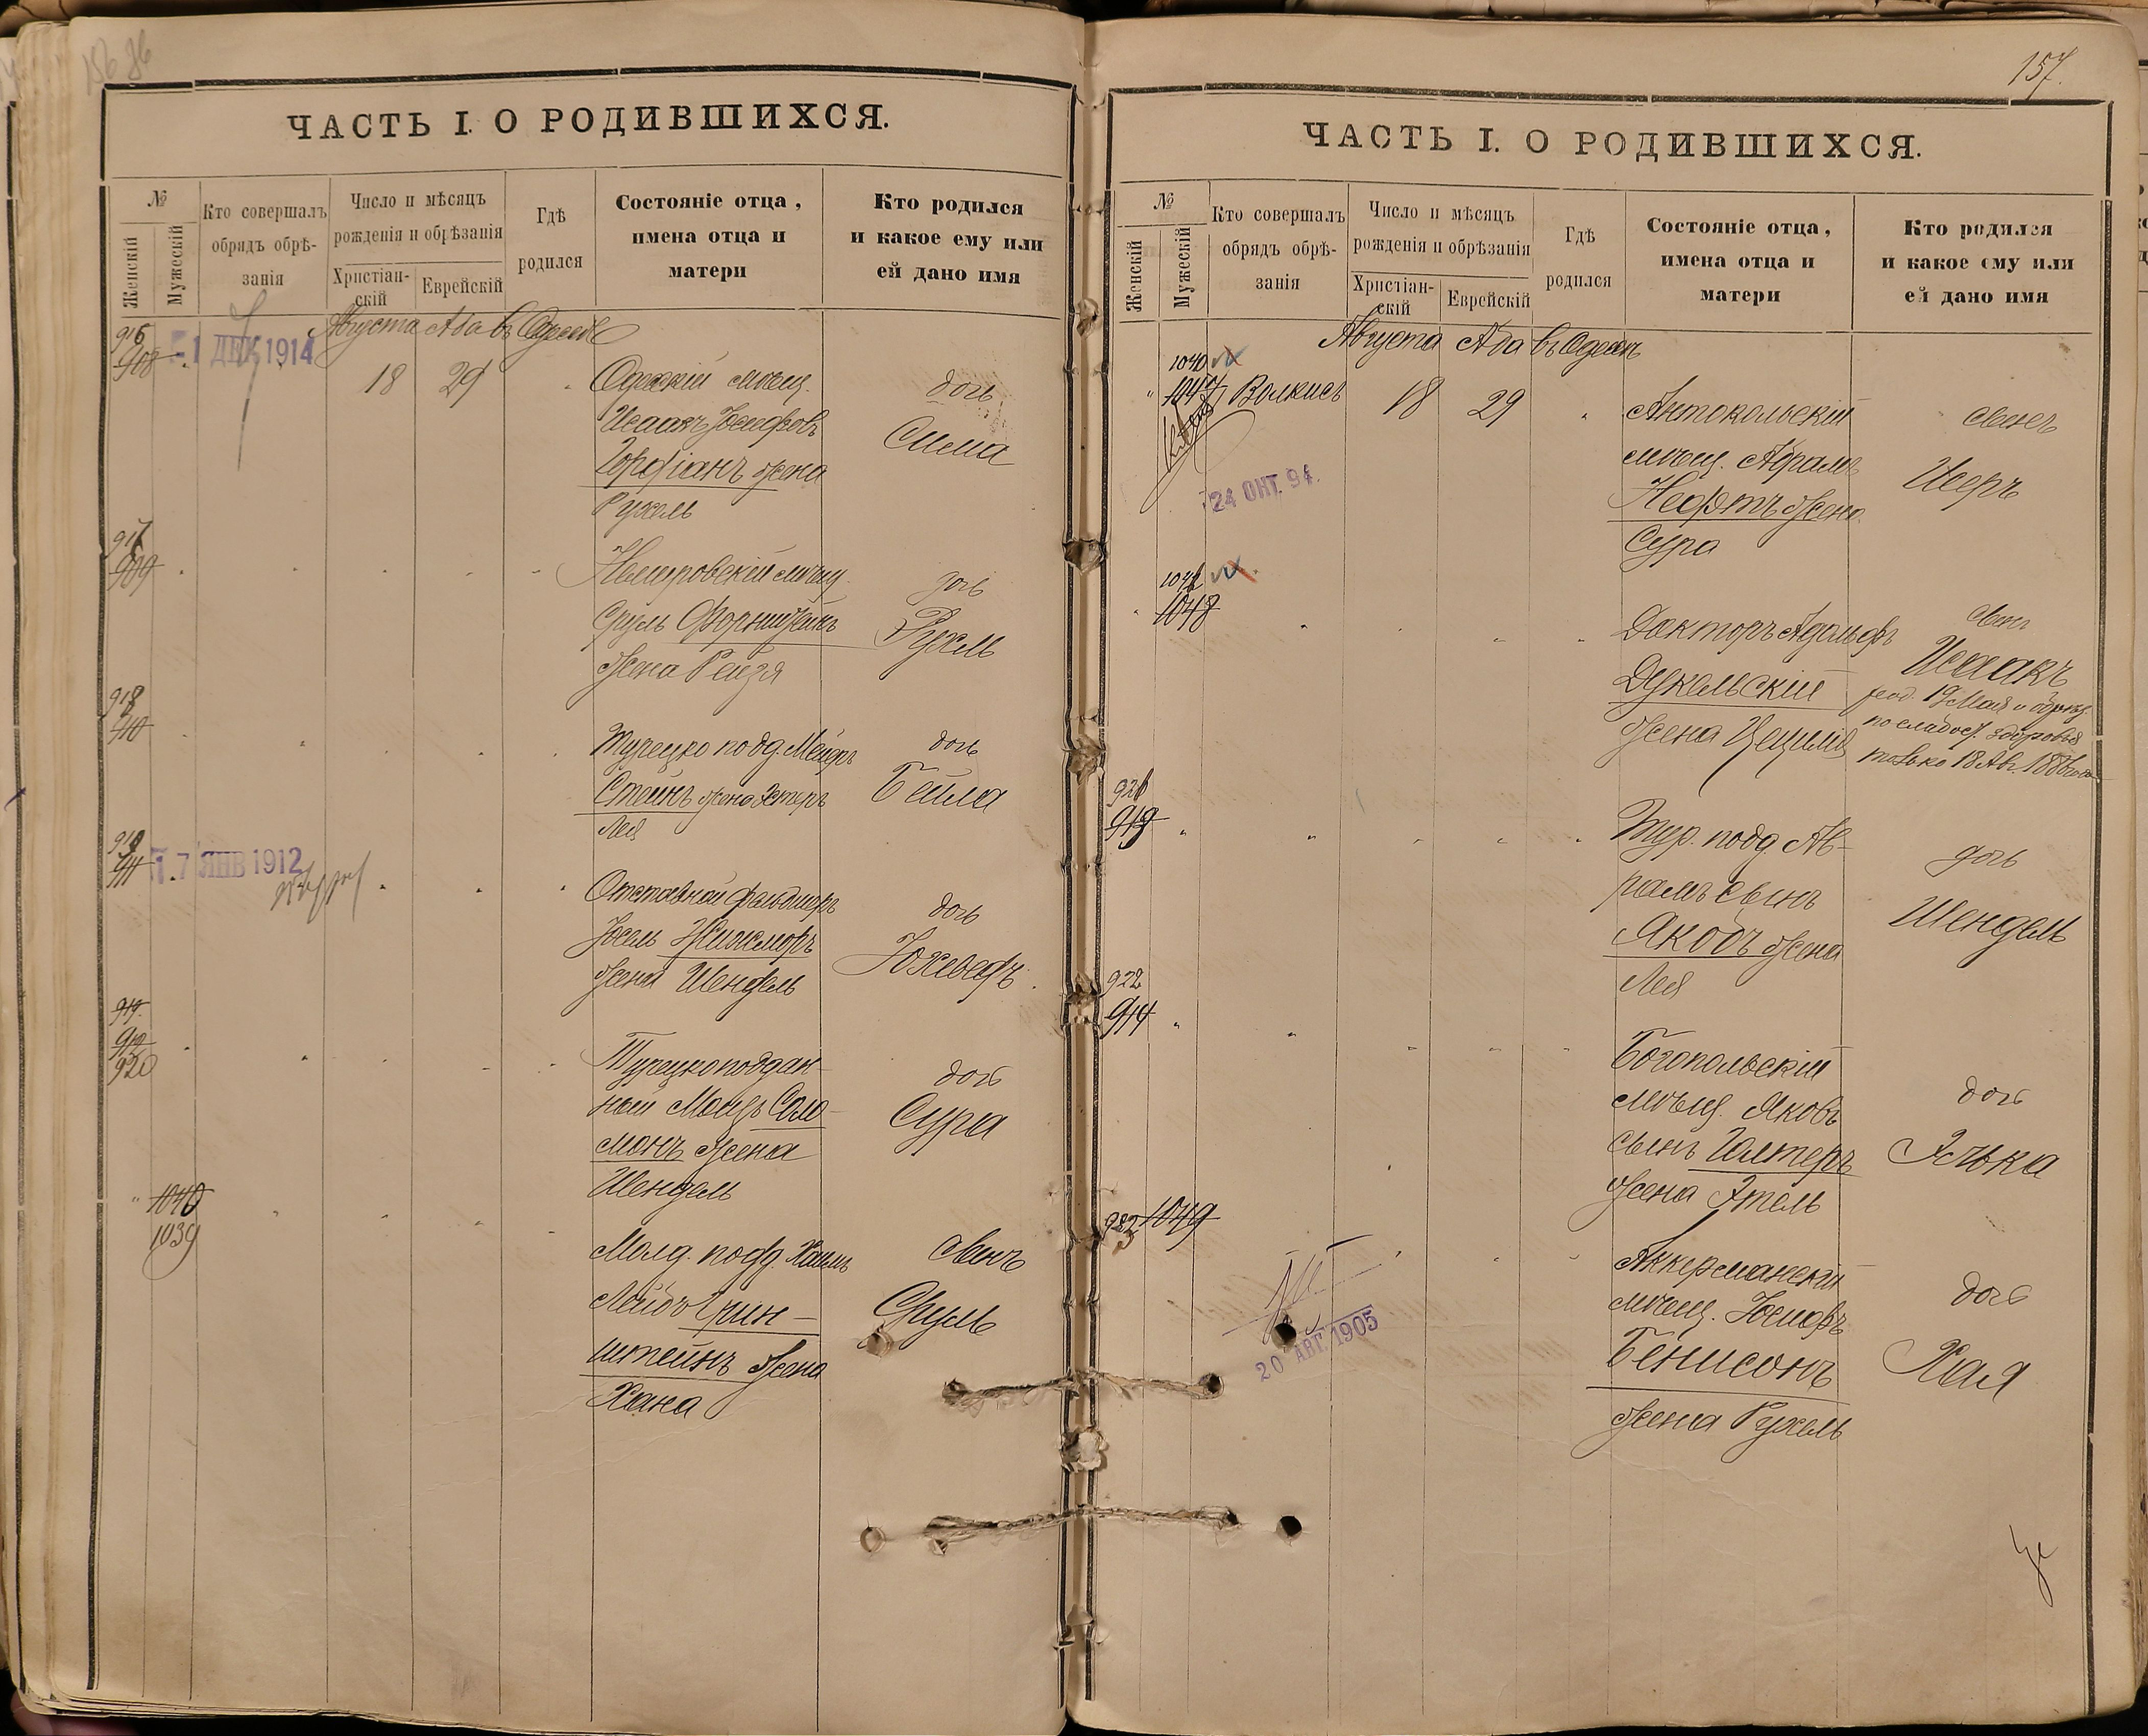 156 об
ЧАСТЬ I. О РОДИВШИХСЯ.
№
Женскій
Мужескій
Кто совершалъ
обрядъ обрѣ-
занія
Число и мѣсяцъ
рожденія и обрѣзанія
Христіан-
скій
Еврейскій
Гдѣ
родился
Состояніе отца,
имена отца и
матери
Кто родился
и какое ему или
ей дано имя
Августа Ава въ Одессѣ
916
908
1 ДЕК 1914
18 29
Одесскій мѣщ.
Исаакъ Іосифовъ
жена
Рухель
дочь
Сима
917
909
Немировскій мѣщ.
Сруль Форнштейнъ
жена Рейзя
дочь
Рухль
918
910
Турецко подд. Мейеръ
Стейнъ жена Эстеръ
Лея
дочь
Бейла
919
911
17 ЯНВ 1912
Отставной фельдшеръ
Іосель Жижморъ
жена Шендель
дочь
Юхеведъ
919.
912
920
Турецкоподдан-
ный Соло-
монъ жена
Шендель
дочь
Сура
1040
1039
Молд. подд. Хаимъ
Лейбъ Грин-
штейнъ жена
Хана
сынъ
Сруль
157.
ЧАСТЬ I. О РОДИВШИХСЯ.
№
Женскій
Мужескій
Кто совершалъ
обрядъ обрѣ-
занія
Число и мѣсяцъ
рожденія и обрѣзанія
Христіан-
скій
Еврейскій
Гдѣ
родился
Состояніе отца,
имена отца и
матери
Кто родился
и какое ему или
ей дано имя
Августа Ава въ Одессѣ
1040
1047 Волкисъ 18 29
24 ОКТ. 94.
Антокольскій
мѣщ. Абрамъ
Нефтъ жена
Сура
сынъ
Исеръ
1048
Докторъ Адольфъ
Дукельскій
жена Цецилія
сынъ
Исаакъ
род. 19 Мая и обрѣз.
по слабост. здоровья
только 18 Авг.
921
913
Тур. подд. Ав-
рамъ сынъ
Якобъ жена
Лея
дочь
Шендель
922
914
Богопольскій
мѣщ. Яковъ
сынъ Галтеръ
жена Этель
дочь
923 1049
20 АВГ. 1905
Аккерманскій
мѣщ. Іосифъ
Бенисонъ
жена Рухель
дочь
Хая